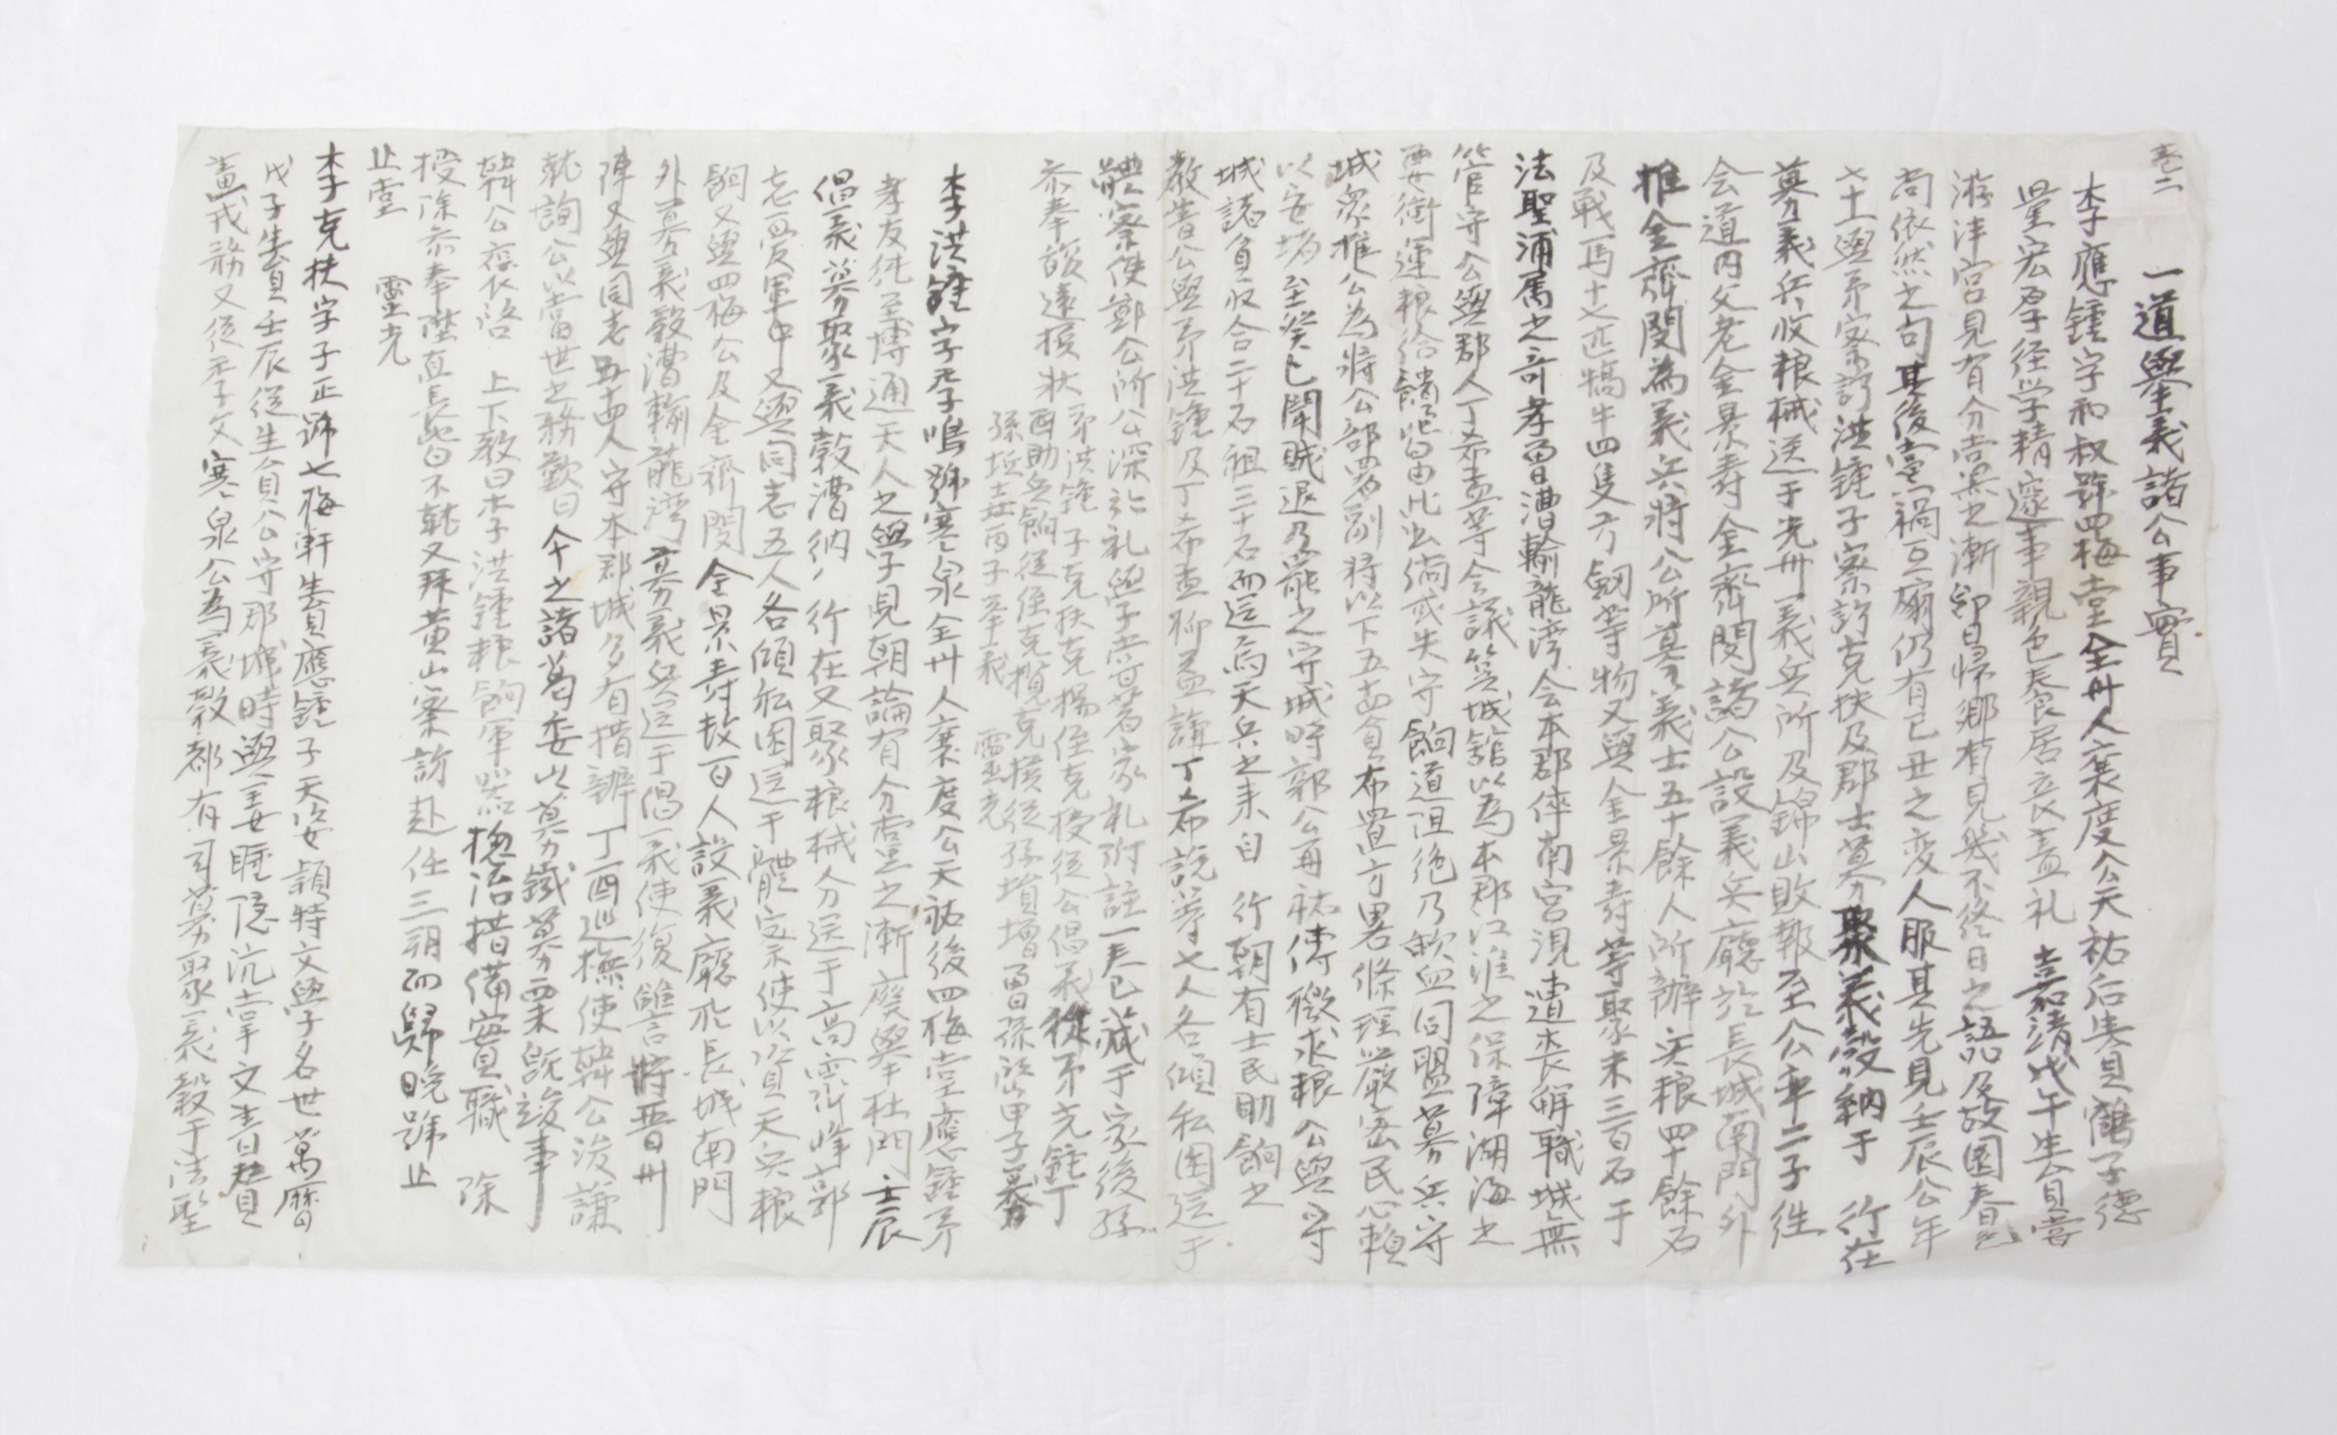 卷二
一道擧義諸公事實
李應鍾字和叔號四梅堂全州人襄度公天祐后贒鶴子德
量宏厚經學精邃事親色養居喪盡禮 嘉靖戊午生貟嘗
游泮宮見有分党之漸卽日歸鄕有見幾不終日之語及故園春色
尙依然之句其後党禍亘廟仍有己丑之変人服其先見壬辰公年
七十一與弟察訪洪鍾子察訪克扶及郡士募聚義穀納于 行在
募義兵收粮械送于光州義兵所及錦山敗報至公率二子往
会道內父老金景壽金齊閔諸公設義兵廳於長城南門外
推金齊閔為義兵將公所募義士五十餘人所辦兵粮四十餘石
及戰馬十七匹犒牛四隻弓釼等物又與金景壽等聚米三百石于
法聖浦属之奇孝曽漕輸龍湾会本郡倅南宮涀遭喪解職城無
管守公與郡人丁希孟等会議筽城舘以為本郡江淮之保障湖海之
要衝運粮給饋皆由此出倘或失守餉道阻絶乃歃血同盟募兵守
城衆推公為將公部署副將以下五十貟布置方畧條理嚴密民心賴
以安堵至癸巳聞賊退乃罷之守城時郭公再祐傳檄求粮公與守
城諸貟收合二十石租三十石而送焉天兵之来自 行朝有士民助餉之
敎普公與弟洪鍾及丁希孟柳益謙丁希説等七人各傾私囷送于
體察使鄭公所公深於礼學嘗著家礼附註一卷藏于家後孫
叅奉諼遠撰狀 弟洪鍾子克扶克揚侄克授従公倡義従弟克鍾丁
酉助兵餉従侄克攬克撗従孫塤增曽孫㟳甲子募
孫坵壵丙子挙義 靈光
李洪鍾字呑子鳴號寒泉全州人襄度公天祐後四梅堂應鍾弟
孝友純至博通天人之學見朝論有分党之漸廢擧杜門壬辰
倡義募聚義穀漕納行在又聚粮械分送于高霽峰郭
忘憂軍中又與同志五人各傾私囷送于體察使以資天兵粮
餉又與四梅公及金齊閔金景壽故百人設義廳於長城南門
外募義穀漕輸龍湾募義兵送于倡義使復讐將晋州
陣又與同志五十四人守本郡城多有措辦丁酉巡撫使韓公浚謙
就詢公以當世之務歎曰今之諸葛委以募鐵募粟旣竣事
韓公褒啓 上下敎曰李洪鍾粮餉軍器揔治措備實職 除
授除叅奉陞直長皆不就又拜黃山察訪赴任三朔而歸晩號止
止堂 靈光
李克扶字子正號七梅軒贒應鍾子天姿穎特文學名世萬曆
戊子贒壬辰従生貟公守郡城時與姜睡隱沆掌文書日贊
盡戎務又従季父寒泉公為義穀都有司募聚義穀于法聖